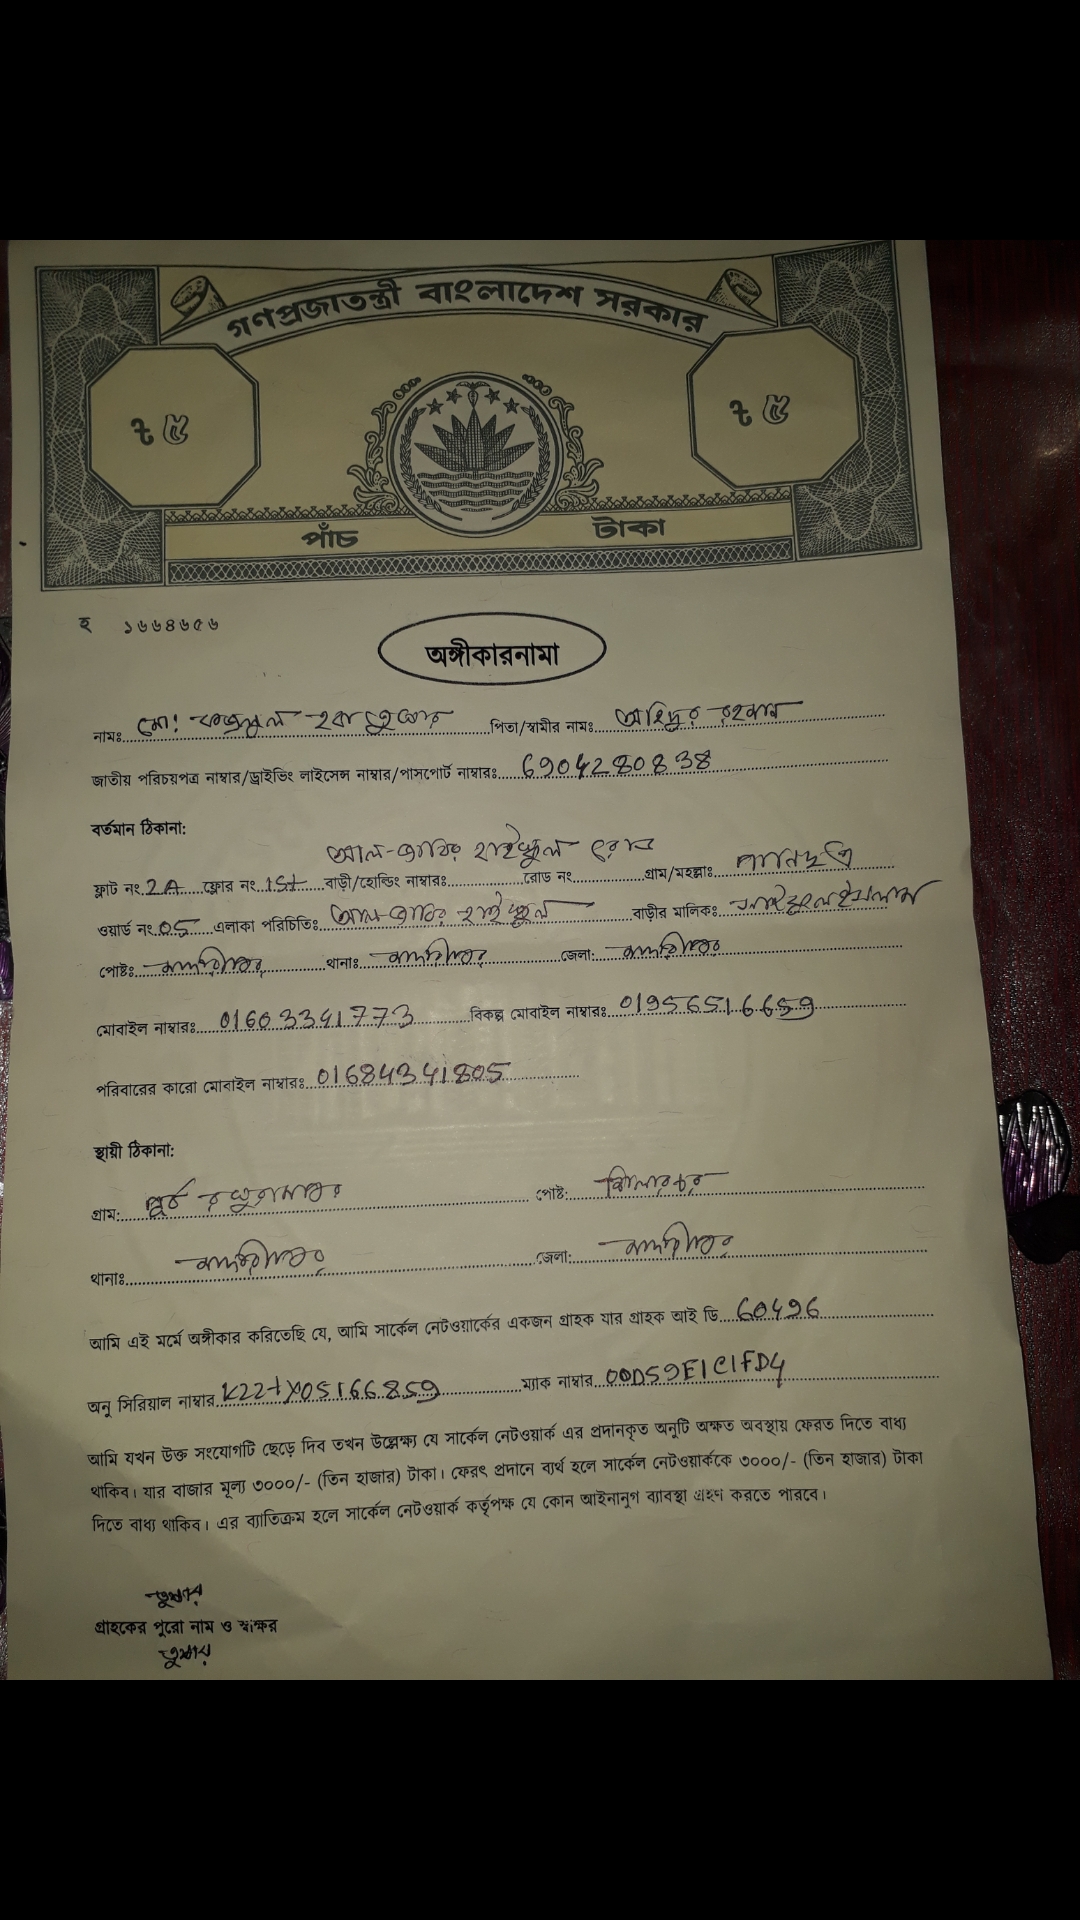 গণপ্রজাতন্ত্রী বাংলাদেশ সরকার
৳ ৫ ৳ ৫
পাঁচ টাকা
হ ১৬৬৪৬৫৬
অঙ্গীকারনামা
নামঃ মো: পিতা/স্বামীর নামঃ রহমান
জাতীয় পরিচয়পত্র নাম্বার/ড্রাইভিং লাইসেন্স নাম্বার/পাসপোর্ট নাম্বারঃ 6904280838
বর্তমান ঠিকানা:
আল-জাবির হাইস্কুল রোড
ফ্লাট নং 2A ফ্লোর নং 1st বাড়ী/হোল্ডিং নাম্বারঃ রোড নং গ্রাম/মহল্লাঃ পানিছত্র
ওয়ার্ড নং 05 এলাকা পরিচিতিঃ আল-জাবির হাইস্কুল বাড়ীর মালিকঃ
পোষ্টঃ মাদারীপুর থানাঃ মাদারীপুর জেলা: মাদারীপুর
মোবাইল নাম্বারঃ 01603341773 বিকল্প মোবাইল নাম্বারঃ 01956516659
পরিবারের কারো মোবাইল নাম্বারঃ 01684341805
স্থায়ী ঠিকানা:
গ্রাম: পূর্ব পোষ্ট:
থানাঃ মাদারীপুর জেলা: মাদারীপুর
আমি এই মর্মে অঙ্গীকার করিতেছি যে, আমি সার্কেল নেটওয়ার্কের একজন গ্রাহক যার গ্রাহক আই ডি 60496
অনু সিরিয়াল নাম্বার ম্যাক নাম্বার 00D59E1C1FD4
আমি যখন উক্ত সংযোগটি ছেড়ে দিব তখন উল্লেক্ষ্য যে সার্কেল নেটওয়ার্ক এর প্রদানকৃত অনুটি অক্ষত অবস্থায় ফেরত দিতে বাধ্য
থাকিব। যার বাজার মূল্য ৩০০০/- (তিন হাজার) টাকা। ফেরৎ প্রদানে ব্যর্থ হলে সার্কেল নেটওয়ার্ককে ৩০০০/- (তিন হাজার) টাকা
দিতে বাধ্য থাকিব। এর ব্যাতিক্রম হলে সার্কেল নেটওয়ার্ক কর্তৃপক্ষ যে কোন আইনানুগ ব্যাবস্থা গ্রহণ করতে পারবে।
তুষার
গ্রাহকের পুরো নাম ও স্বাক্ষর
তুষার